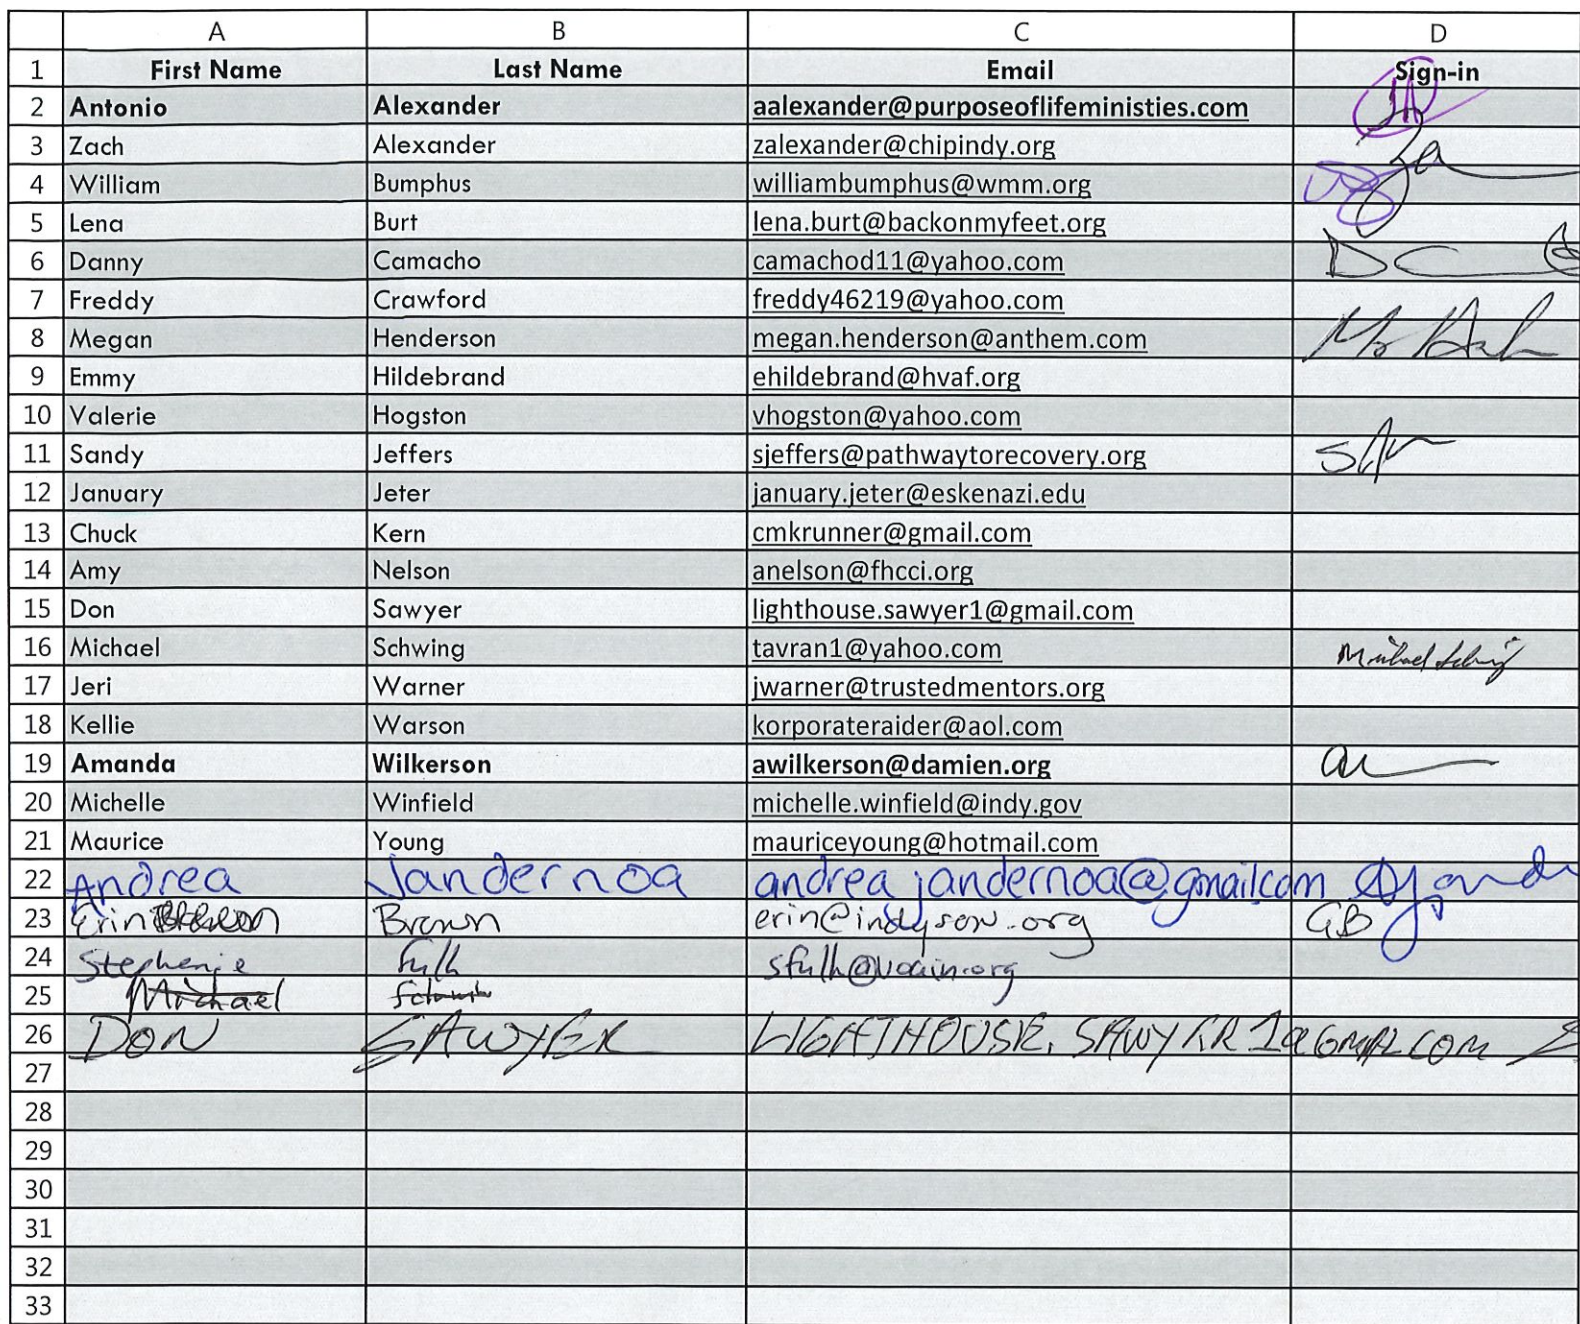 A B C D
1 First Name Last Name Email Sign-in
2 Antonio Alexander aalexander@purposeoflifeministies.com
3 Zach Alexander zalexander@chipindy.org
4 William Bumphus williambumphus@wmm.org
5 Lena Burt lena.burt@backonmyfeet.org
6 Danny Camacho camachod11@yahoo.com
7 Freddy Crawford freddy46219@yahoo.com
8 Megan Henderson megan.henderson@anthem.com
9 Emmy Hildebrand ehildebrand@hvaf.org
10 Valerie Hogston vhogston@yahoo.com
11 Sandy Jeffers sjeffers@pathwaytorecovery.org
12 January Jeter january.jeter@eskenazi.edu
13 Chuck Kern cmkrunner@gmail.com
14 Amy Nelson anelson@fhcci.org
15 Don Sawyer lighthouse.sawyer1@gmail.com
16 Michael Schwing tavran1@yahoo.com
17 Jeri Warner jwarner@trustedmentors.org
18 Kellie Warson korporateraider@aol.com
19 Amanda Wilkerson awilkerson@damien.org
20 Michelle Winfield michelle.winfield@indy.gov
21 Maurice Young mauriceyoung@hotmail.com
22 Andrea Jandernoa andrea.jandernoa@gmail.com
23 Erin Brown erin@indysow.org
24 Stephenie Fulk sfulk@voain.org
25 Michael
26 DON SAWYER LIGHTHOUSE.SAWYER1@GMAIL.COM
27
28
29
30
31
32
33